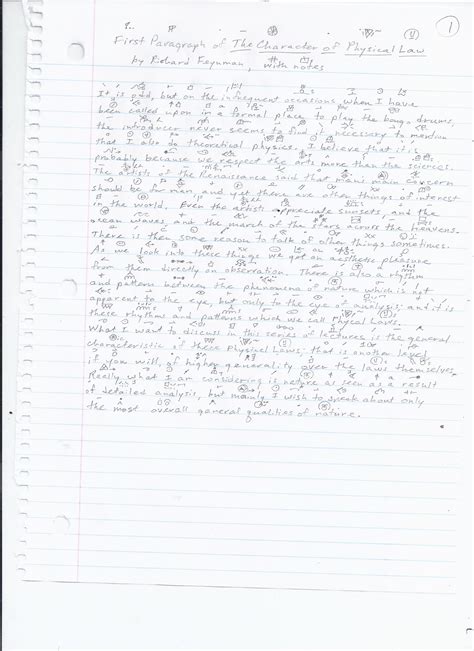 1
First Paragraph of The Character of Physical Law
by Richard Feynman, with notes
It is odd, but on the infrequent occasions when I have
been called upon in a formal place to play the bongo drums,
the introducer never seems to find it necessary to mention
that I also do theoretical physics. I believe that it is
probably because we respect the arts more than the sciences.
The artists of the Renaissance said that man's main concern
should be for man, and yet there are other things of interest
in the world. Even the artist appreciate sunsets, and the
ocean waves, and the march of the stars across the heavens.
There is then some reason to talk of other things sometimes.
As we look into these things we get an aesthetic pleasure
from them directly on observation. There is also a rhythm
and pattern between the phenomena of nature which is not
apparent to the eye, but only to the eye of analysis; and it is
these rhythms and patterns which we call Physical Laws.
What I want to discuss in this series of lectures is the general
characteristic of these Physical Laws; that is another level,
if you will, of higher generality over the laws themselves.
Really what I am considering is nature as seen as a result
of detailed analysis, but mainly I wish to speak about only
the most overall general qualities of nature.